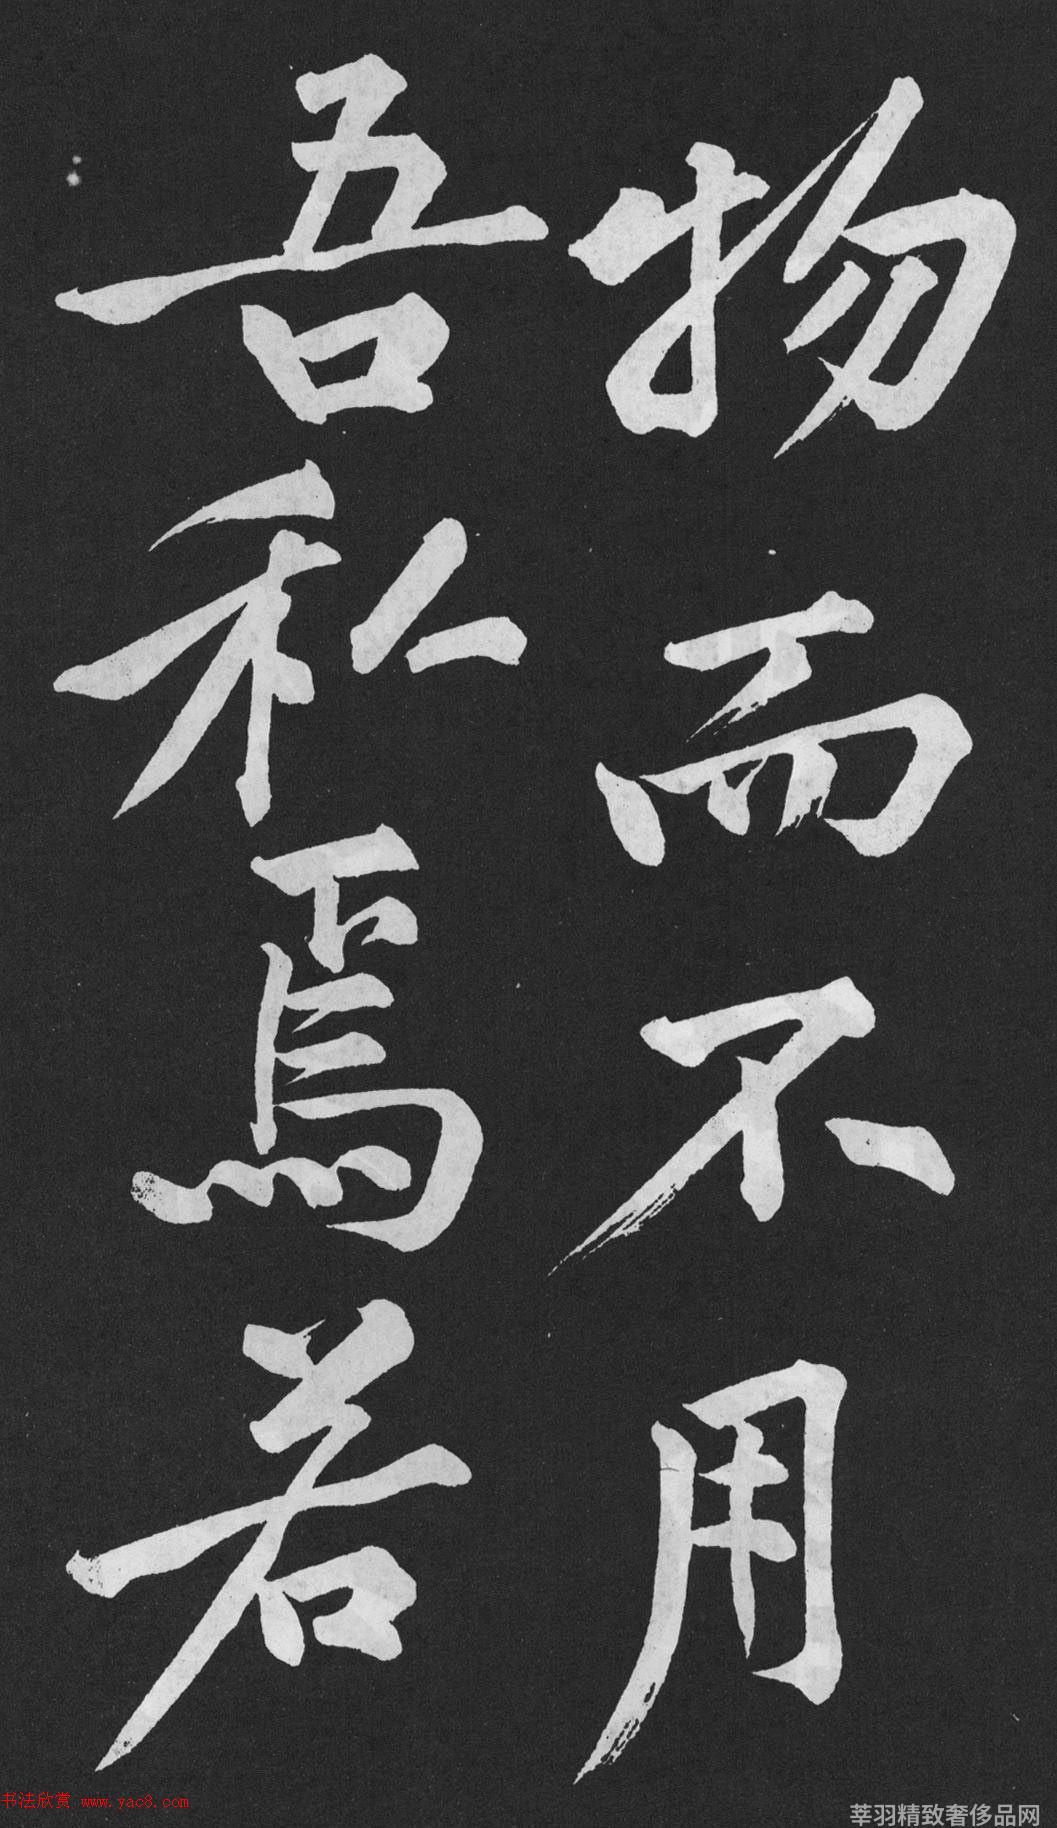 物而不用
吾私焉若
书法欣赏 www.yac8.com
莘羽精致奢侈品网